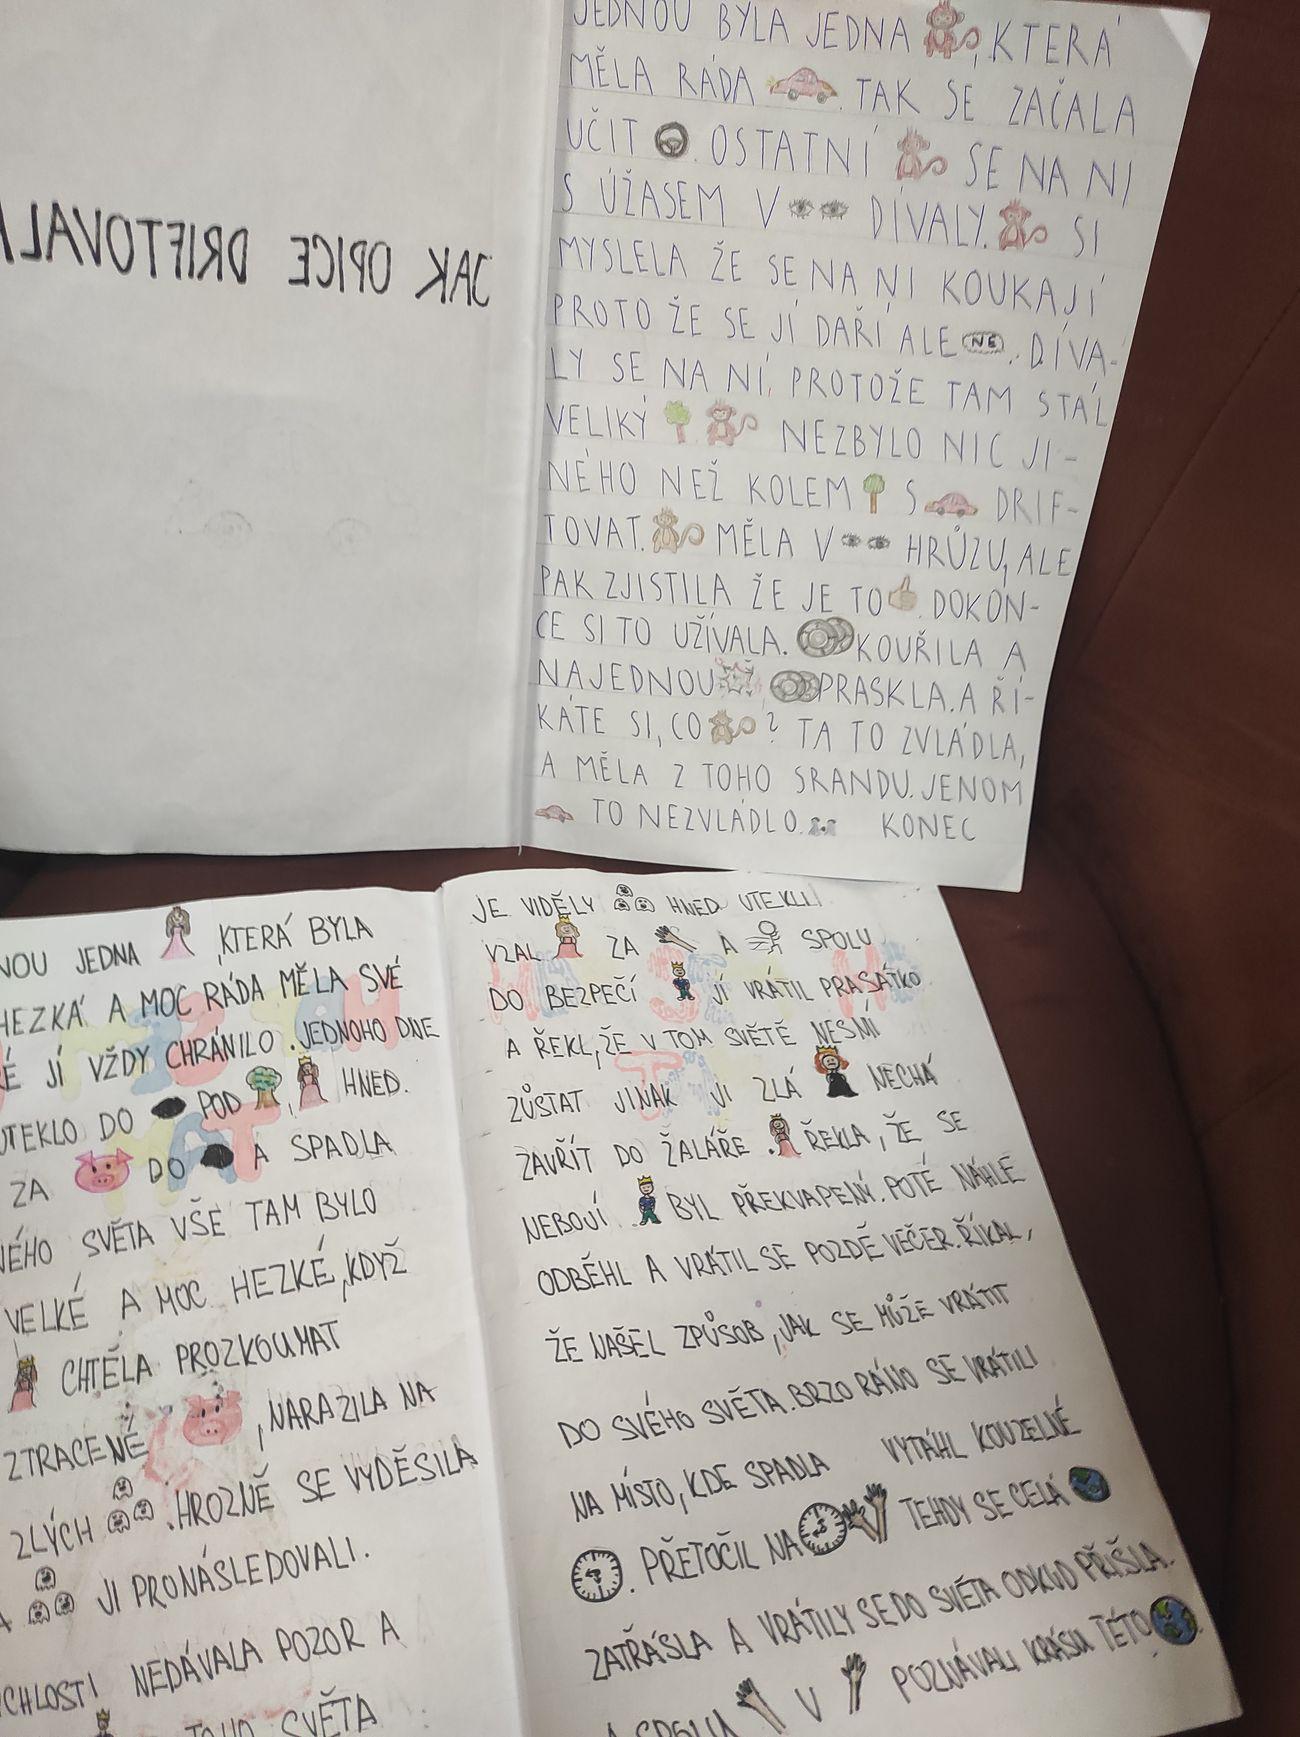 JAK OPICE DRIFTOVALA
JEDNOU BYLA JEDNA , KTERÁ
MĚLA RÁDA . TAK SE ZAČALA
UČIT . OSTATNÍ SE NA NI
S ÚŽASEM V DÍVALY. SI
MYSLELA ŽE SE NA NI KOUKAJÍ
PROTO ŽE SE JÍ DAŘÍ ALE NE . DÍVA-
LY SE NA NÍ, PROTOŽE TAM STÁL
VELIKÝ NEZBYLO NIC JI-
NÉHO NEŽ KOLEM S DRIF-
TOVAT. MĚLA V HRŮZU, ALE
PAK ZJISTILA ŽE JE TO . DOKON-
CE SI TO UŽÍVALA. KOUŘILA A
NAJEDNOU PRASKLA. A ŘÍ-
KÁTE SI, CO ? TA TO ZVLÁDLA,
A MĚLA Z TOHO SRANDU. JENOM
TO NEZVLÁDLO. KONEC
NOU JEDNA , KTERÁ BYLA
HEZKÁ A MOC RÁDA MĚLA SVÉ
JÍ VŽDY CHRÁNILO . JEDNOHO DNE
UTEKLO DO POD , HNED.
ZA DO A SPADLA
SVĚTA VŠE TAM BYLO
VELKÉ A MOC HEZKÉ, KDYŽ
CHTĚLA PROZKOUMAT
ZTRACENÉ , NARAZILA NA
ZLÝCH . HROZNĚ SE VYDĚSILA
JI PRONÁSLEDOVALI.
NEDÁVALA POZOR A
TOHO SVĚTA
JE VIDĚLY HNED UTEKLI
VZAL ZA A SPOLU
DO BEZPEČÍ JÍ VRÁTIL PRASÁTKO
A ŘEKL, ŽE V TOM SVĚTĚ NESMÍ
ZŮSTAT JINAK JI ZLÁ NECHÁ
ZAVŘÍT DO ŽALÁŘE . ŘEKLA, ŽE SE
NEBOJÍ BYL PŘEKVAPENÝ. POTÉ NÁHLE
ODBĚHL A VRÁTIL SE POZDĚ VEČER. ŘÍKAL,
ŽE NAŠEL ZPŮSOB, JAK SE MŮŽE VRÁTIT
DO SVÉHO SVĚTA. BRZO RÁNO SE VRÁTILI
NA MÍSTO, KDE SPADLA VYTÁHL KOUZELNÉ
. PŘETOČIL NA TEHDY SE CELÁ
ZATŘÁSLA A VRÁTILY SE DO SVĚTA ODKUD PŘIŠLA.
A SPOLU V POZNÁVALI KRÁSU TÉTO .